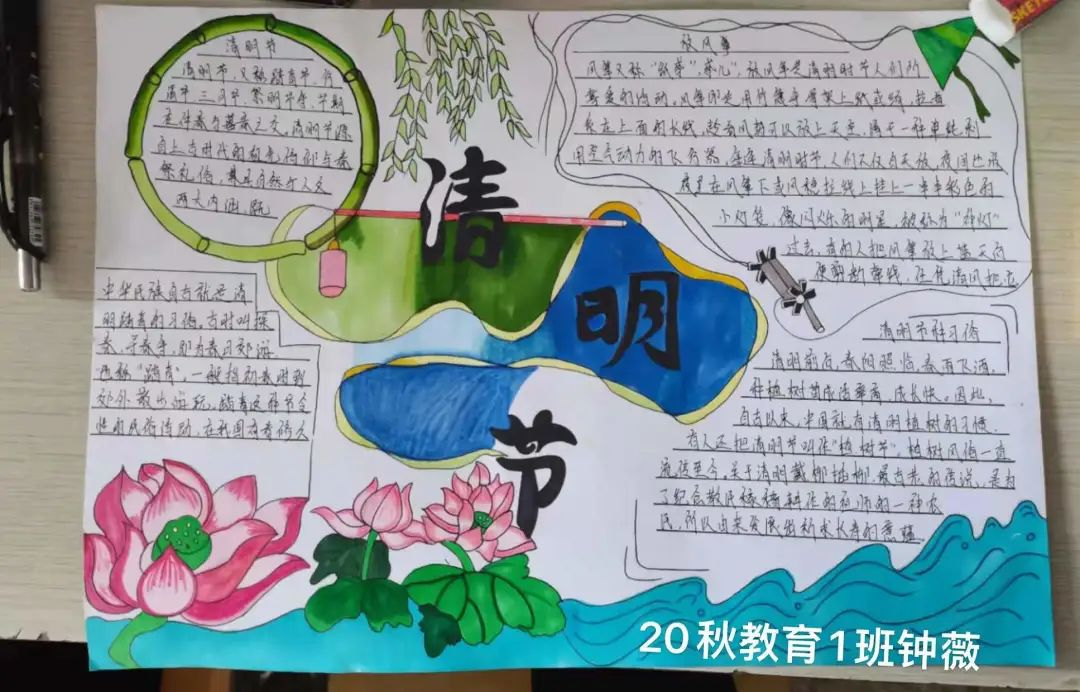 清明节
清明节，又称踏青节、行
清节、三月节、祭祖节等，节期
在仲春与暮春之交。清明节源
自上古时代的祖先信仰与春
祭礼俗，兼具自然与人文
两大内涵，既
清
明
节
放风筝
风筝又称“纸鸢”，鸢儿”，放风筝是清明时节人们所
喜爱的活动。风筝即是用竹篾等骨架上纸或绢，拉着
系在上面的长线，趁着风势可以放上天空，属于一种单纯利
用空气动力的飞行器。每逢清明时节，人们不仅白天放，夜间也放
夜里在风筝下或风稳拉线上挂上一串串彩色的
小灯笼，像闪烁的明星，被称为“神灯”
过去，有的人把风筝放上蓝天后，
便剪断牵线，任凭清风把它
中华民族自古就延清
明踏青的习俗。古时叫探
春、寻春等，即为春日郊游，
也称“踏青”，一般指初春时到
郊外散步游玩，踏青这种节令
性的民俗活动，在我国有着悠久
清明节种习俗
清明前后，春阳照临，春雨飞洒，
种植树苗成活率高，成长快。因此，
自古以来，中国就有清明植树的习惯。
有人还把清明节叫作“植树节”。植树风俗一直
流传至今。关于清明戴柳插柳，最古老的传说，是为
了纪念教民稼穑耕作的祖师的一种农
民，所以由来发展出祈求长寿的意蕴
20秋教育1班钟薇